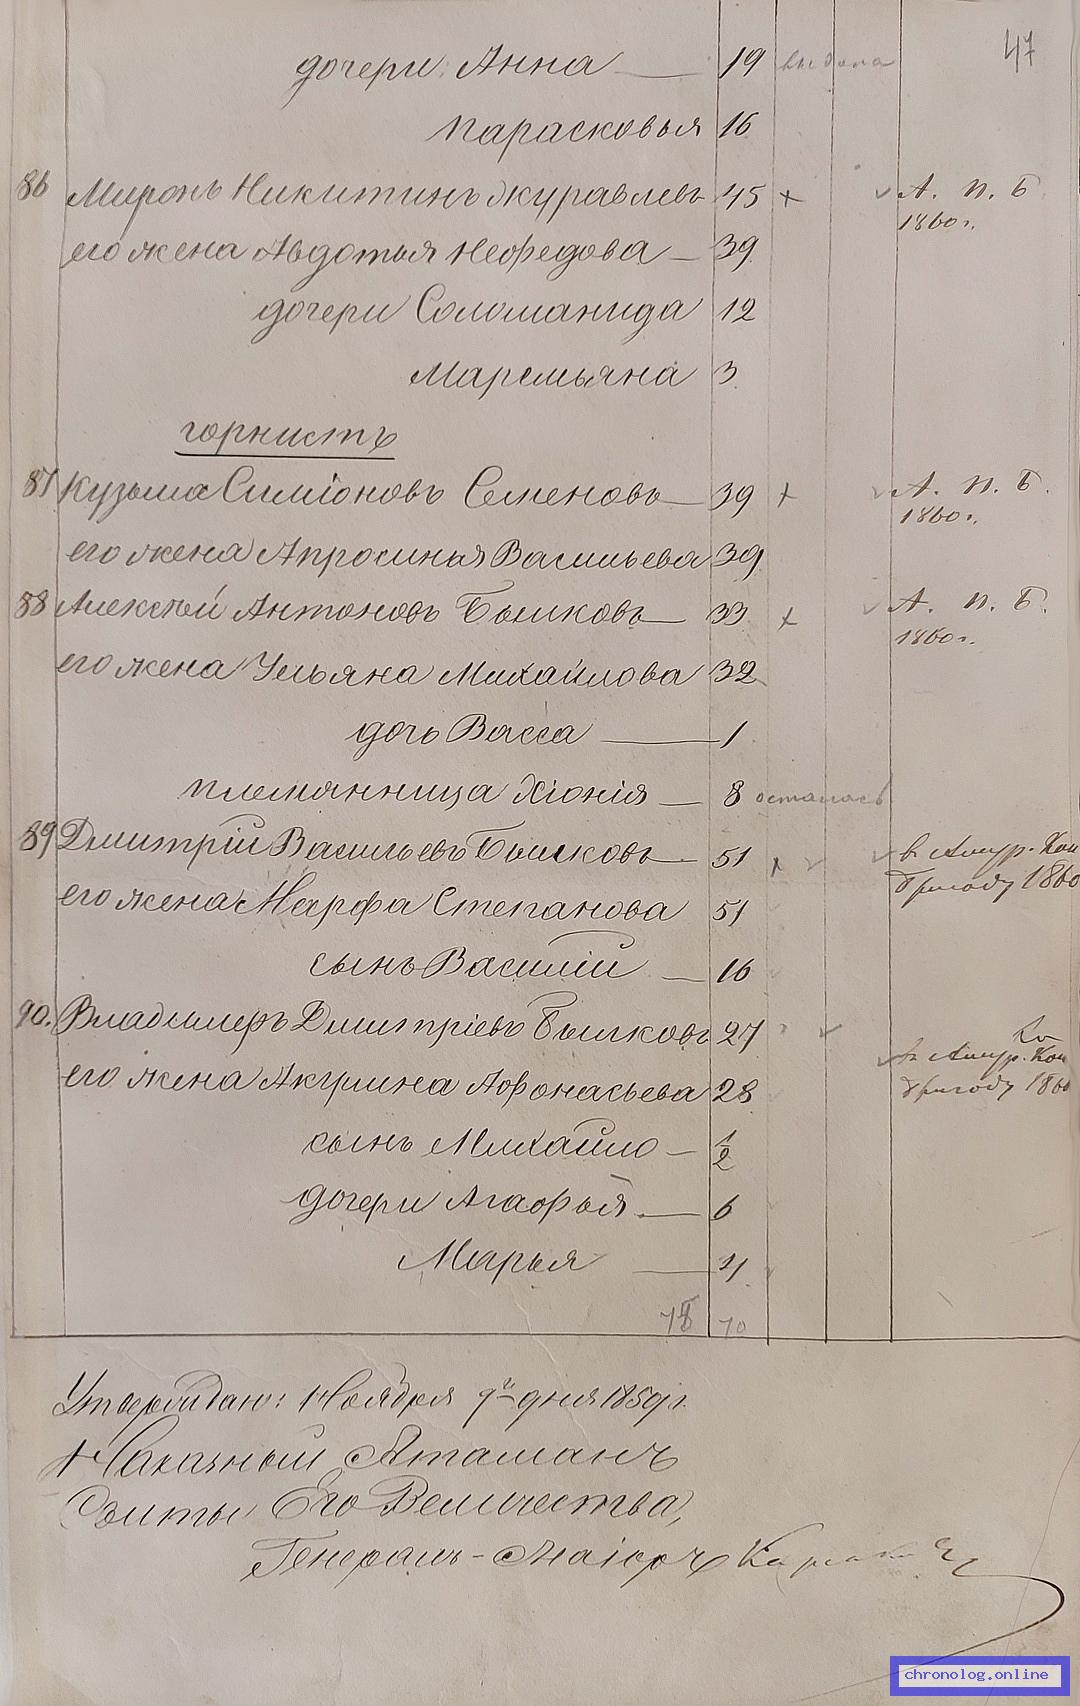 47
дочери Анна — 19 выдана
Парасковья 16
86 Миронъ Никитинъ Журавлевъ 45 + ✓ А. П. Б
1860 г.
его жена Авдотья Нефедова — 39
дочери Соломанида 12
Маремьяна 3
горнистъ
87 Кузьма Симіоновъ Семеновъ — 39 + ✓ А. П. Б.
1860 г.
его жена Апросинья Васильева 39
88 Алексѣй Антоновъ Бышковъ — 33 + ✓ А. П. Б.
1860 г.
его жена Ульяна Михайлова 32
дочь Васса — 1
племянница Хіонія — 8 осталась
89 Дмитрій Васильевъ Бышковъ — 51 + ✓ ✓ в Амур. Кон
бригаду 1860
его жена Марфа Степанова 51
сынъ Василій — 16
90. Владимеръ Дмитріевъ Бышковъ 27 ✓
✓ в Амур. Кон
бригаду 1860
его жена Акулина Афонасьева 28
сынъ Михайло — 1/2
дочери Агафья — 6
Марья — 4
70
Утвержидаю: Ноября 9го дня 1859 г.
Наказный Атаманъ
Свиты Его Величества,
Генералъ-Маіоръ
chronolog.online